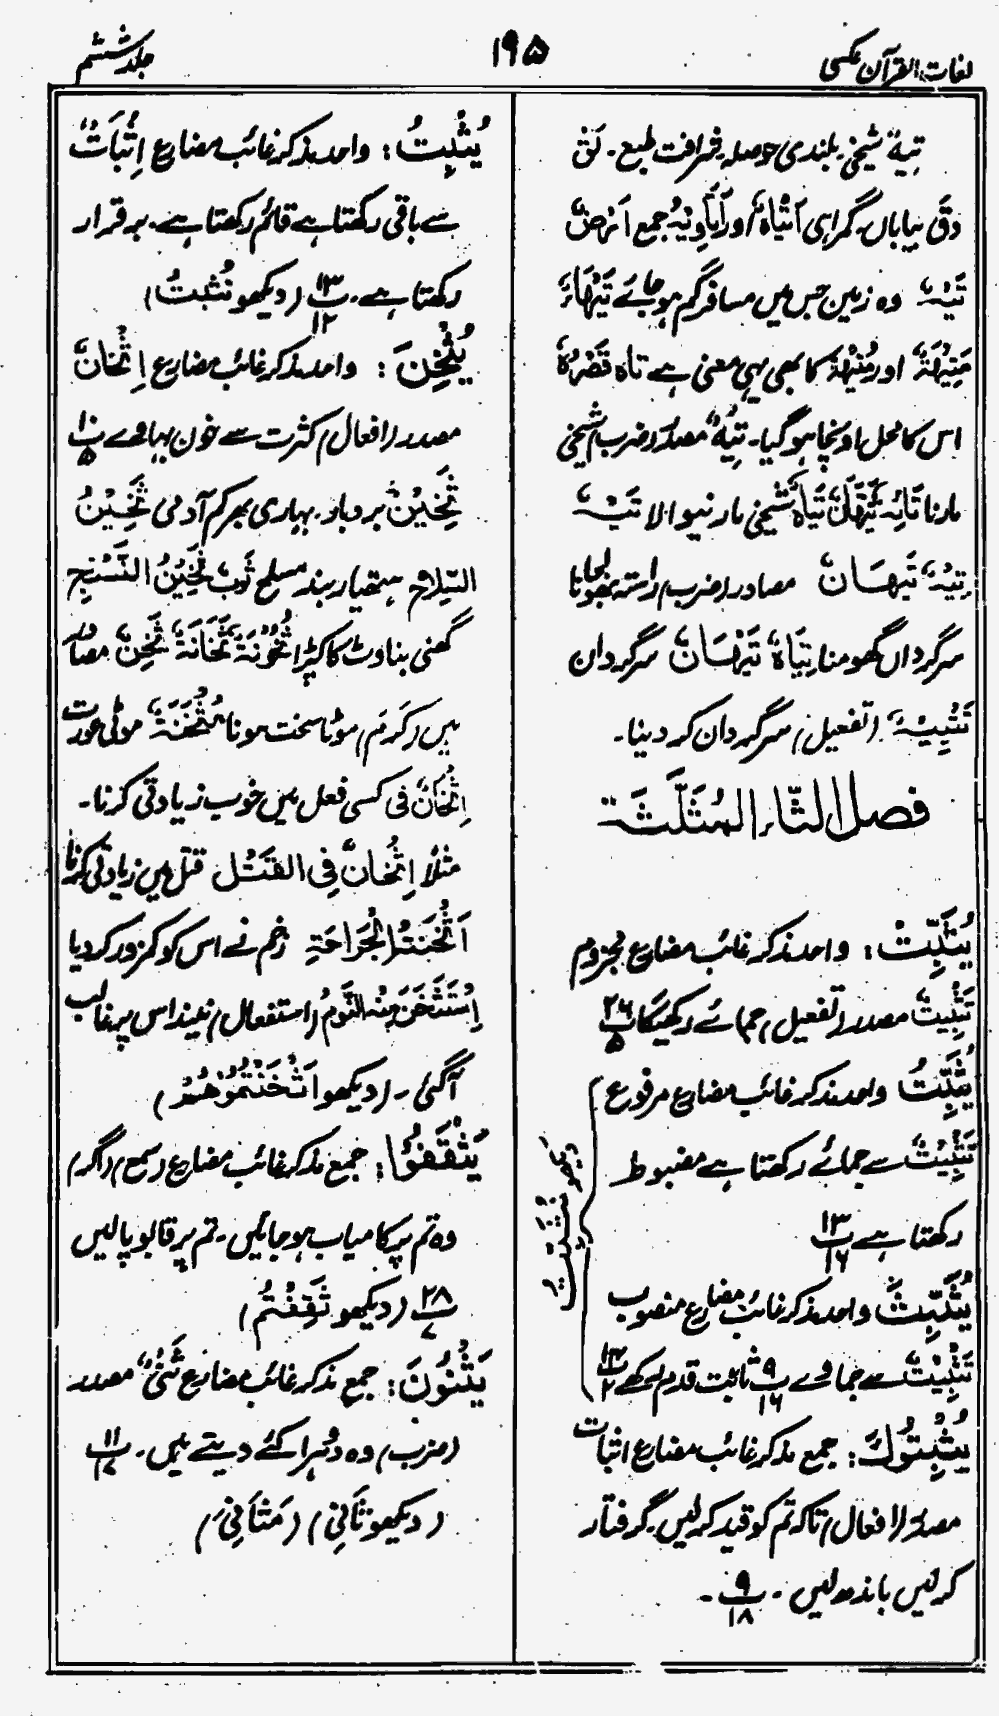 لغات القرآن عکسی
۱۹۵
جلد ششم
تِیہٌ شیخی۔ بلندی حوصلہ۔ ظرافت طبع۔ لق
دق بیاباں۔ گمراہی اَتْیَاہٌ اور اَتَاوِیْہُ جمع اَرْضٌ
تَیْہٌ وہ زمین جس میں مسافر گم ہو جائے تَیْهَاءُ
مَتِیْهَةٌ اور مُتِیْهَةٌ کا بھی یہی معنی ہے تَاہَ قَصْرُہٗ
اس کا محل اونچا ہو گیا۔ تِیْہٌ مصدر (ضرب) شیخی
مارنا تَائِہٌ تَیَّهَانٌ تَیَّاہٌ شیخی مارنیوالا تَیْہٌ
تِیْہٌ تَیَهَانٌ مصادر (ضرب) راستہ بھولنا
سرگرداں گھومنا تِیَّاہٌ تَیْهَانٌ سرگردان
تَتْیِیْہٌ (تفعیل) سرگردان کر دینا۔
فصل الثّاء المثلّثة
یُثَبِّتْ : واحد مذکر غائب مضارع مجزوم
تَثْبِیْتٌ مصدر (تفعیل) جمائے رکھیگا پ ۲۶/۵
یُثَبِّتُ واحد مذکر غائب مضارع مرفوع
تَثْبِیْتٌ سے جمائے رکھتا ہے مضبوط
رکھتا ہے پ ۱۳/۱۶
یُثَبِّتَ واحد مذکر غائب مضارع منصوب
تَثْبِیْتٌ سے جماوے پ ۹/۱۶ ثابت قدم رکھے پ ۱۴/۲
دیکھو نُثَبِّتُ
یُثْبِتُوْكَ : جمع مذکر غائب مضارع اثبات
مصدر (افعال) تاکہ تم کو قید کرلیں۔ گرفتار
کرلیں باندھ لیں۔ پ ۹/۱۸۔
یُثْبِتُ : واحد مذکر غائب مضارع اِثْبَاتٌ
سے باقی رکھتا ہے قائم رکھتا ہے۔ برقرار
رکھتا ہے۔ پ ۱۳/۱۲ (دیکھو نُثَبِّتُ)
یُثْخِنَ : واحد مذکر غائب مضارع اِثْخَانٌ
مصدر (افعال) کثرت سے خون بہاوے پ ۱۰/۵
ثَخِیْنٌ بردبار۔ بھاری بھرکم آدمی ثَخِیْنُ
السِّلَاحِ ہتھیار بند مسلح ثَوْبٌ ثَخِیْنُ النَّسْجِ
گھنی بناوٹ کا کپڑا ثُخُوْنَةٌ ثَخَانَةٌ ثَخَنٌ مصادر
ہیں (کَرُمَ) موٹا سخت ہونا مُثْخَنَةٌ موٹی عورت
اِثْخَانٌ فی کسی فعل میں خوب زیادتی کرنا۔
مثلاً اِثْخَانٌ فِی القَتْلِ قتل میں زیادتی کرنا
اَثْخَنَتْهُ الْجَرَاحَةُ زخم نے اس کو کمزور کر دیا
اِسْتَثْخَنَ مِنْهُ النَّوْمُ (استفعال) نیند اس پر غالب
آگئی۔ (دیکھو اَثْخَنْتُمُوْهُمْ)
یَثْقَفُوْا : جمع مذکر غائب مضارع (سمع) (اگر)
وہ تم پر کامیاب ہو جائیں۔ تم پر قابو پالیں
پ ۲۸/۷ (دیکھو ثَقِفْتُمْ)
یَثْنُوْنَ : جمع مذکر غائب مضارع ثَنْیٌ مصدر
(ضرب) وہ دُہرا کئے دیتے ہیں۔ پ ۱۱/۱۷
(دیکھو ثَانِیَ) (مَثَانِیَ)